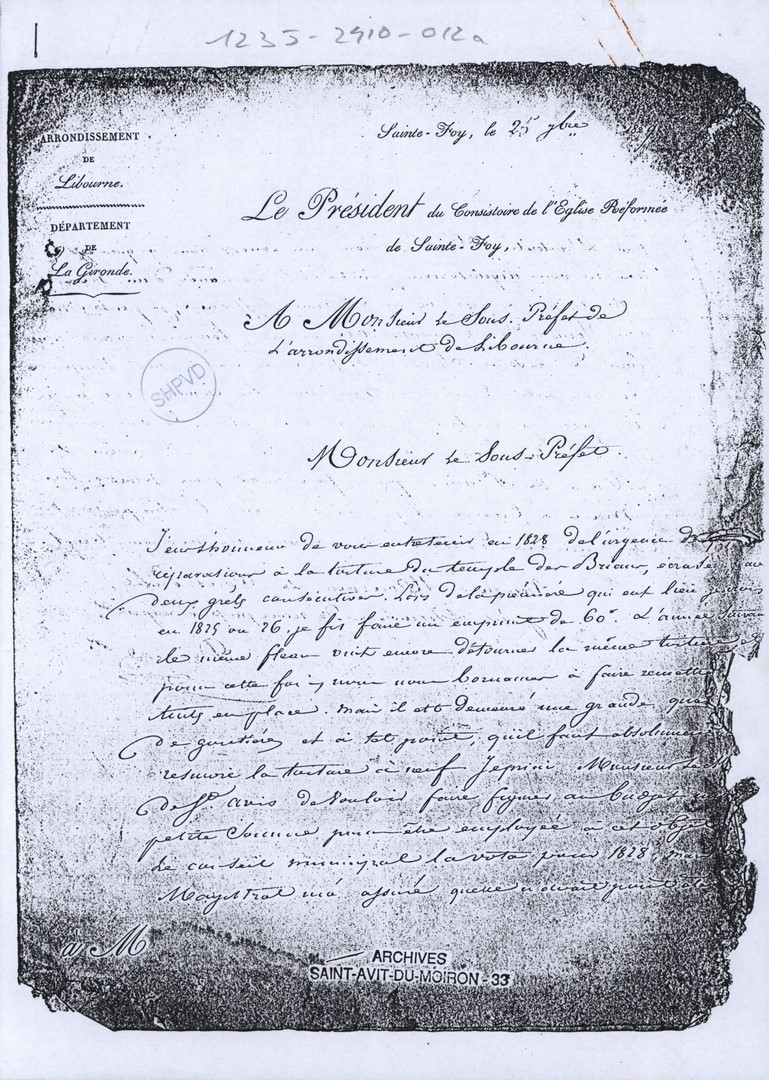 1235-2910-012a
ARRONDISSEMENT
DE
Libourne.
DÉPARTEMENT
DE
La Gironde.
Sainte-Foy, le 25 9bre
Le Président du Consistoire de l'Eglise Réformée
de Sainte-Foy,
A Monsieur le Sous-Préfet de
L'arrondissement de Libourne.
SHPVD
Monsieur le Sous-Préfet
J'eus l'honneur de vous entretenir en 1828 de l'urgence de
réparations à la toiture du temple des Briaux, écrasée
deux grêles consécutives. Lors de la première qui eut lieu
en 1825 ou 26 je fis faire un emprunt de 60f. L'année
le même fléau vint encore détourner la même toiture
pour cette fois, nous nous bornames à faire remettre
tuiles en place. Mais il est demeuré une grande
de goutières et à tel point, qu'il faut absolument
resuivre la toiture à neuf. Je priai Monsieur le
de St avit de vouloir faire figurer au budget
petite Somme pour être employée à cet objet
Le conseil municipal la vota pour 1828,
Magistrat m'a assuré quelle n'avait point été
a M
ARCHIVES
SAINT-AVIT-DU-MOIRON - 33